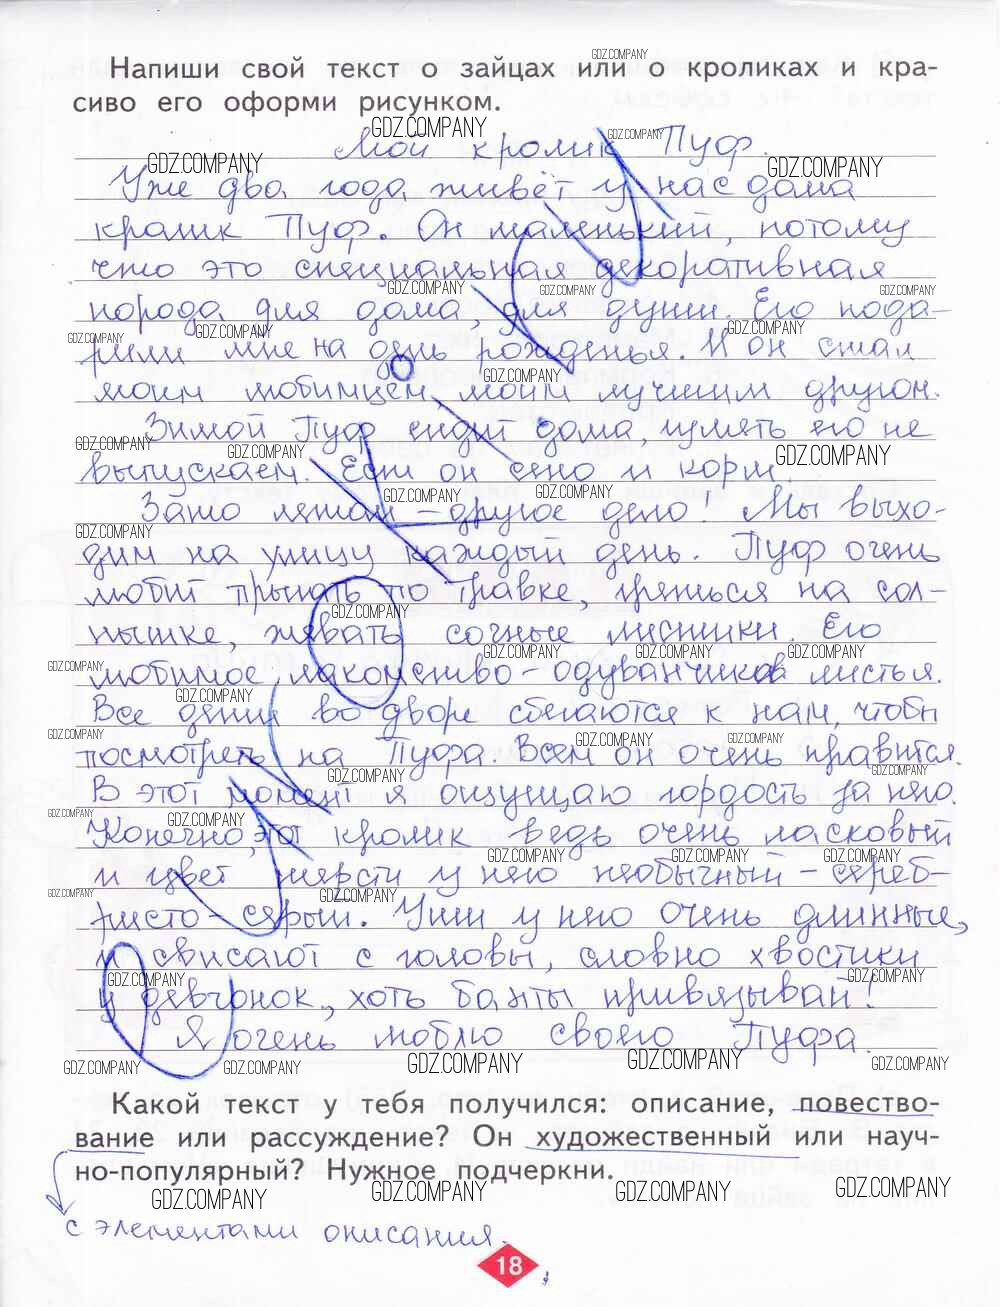 Напиши свой текст о зайцах или о кроликах и кра-
сиво его оформи рисунком.
Мой кролик Пуф.
Уже два года живёт у нас дома
кролик Пуф. Он маленький, потому
что это специальная декоративная
порода для дома, для души. Его пода-
рили мне на день рожденья. И он стал
моим любимцем, моим лучшим другом.
Зимой Пуф сидит дома, гулять его не
выпускаем. Ест он сено и корм.
Зато летом – другое дело! Мы выхо-
дим на улицу каждый день. Пуф очень
любит прыгать по травке, греться на сол-
нышке, жевать сочные листики. Его
любимое лакомство – одуванчиков листья.
Все дети во дворе сбегаются к нам, чтобы
посмотреть на Пуфа. Всем он очень нравится.
В этот момент я ощущаю гордость за него.
Конечно, этот кролик ведь очень ласковый
и цвет шерсти у него необычный – сереб-
ристо-серый. Уши у него очень длинные,
и свисают с головы, словно хвостики
у девчонок, хоть банты привязывай!
Я очень люблю своего Пуфа.
Какой текст у тебя получился: описание, повество-
вание или рассуждение? Он художественный или науч-
но-популярный? Нужное подчеркни.
с элементами описания.
18
GDZ.COMPANY